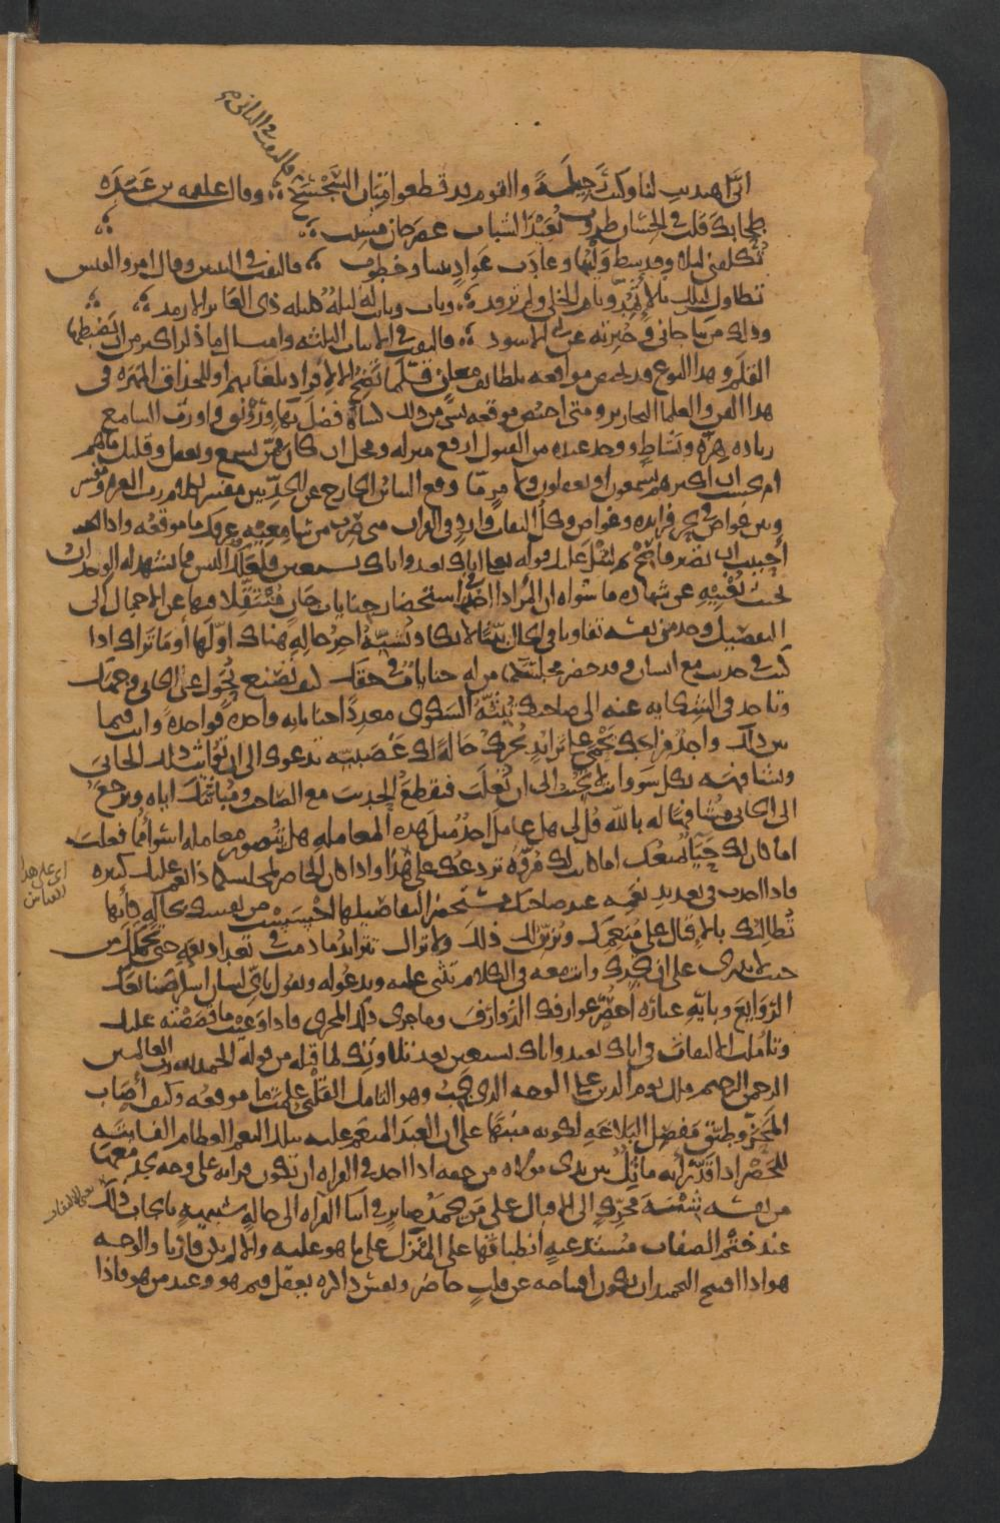 أنى اهتديت لنا وكنت رجيلة والقوم قد قطعوا متان السجسج وقال علقمه بن عبده
فالتفت في البيتين
طحا بك قلب في الحسان طروب بعيد الشباب عصر حان مشيب
تكلفني ليلى وقد شط وليها وعادت عواد بيننا وخطوب فالتفت في البيتين وقال امرو القيس
تطاول ليلك بالاثمد ونام الخلي ولم ترقد وبات وباتت له ليلة كليله ذي العائر الارمد
وذلك من نبا جاني وخبرته عن ابي الاسود فالتفت في الابيات الثلثه وامثال ما ذكر اكثر من ان يضبطها
القلم وهذا النوع قد يختص مواقعه بلطائف معان قلما تتضح الا لافراد بلغائهم او للحذاق المهره في
هذا الفن والعلما النحارير ومتى اختص موقعه بشي من ذلك كساه فضل بهاء ورونق واورث السامع
زياده هزة ونشاط ووجد عنده من القبول ارفع منزله ومحل ان كان ممن يسمع ويعقل وقليل ما هم
ام تحسب ان اكثرهم يسمعون او يعقلون ولامر ما وقع التباين الخارج عن الحد بين مفسر لكلام رب العزه ومفسر
وبين غواص في بحر فرايده وغواص وكل التفات وارد في القران متى صرت من سامعيه عرفك ما موقعه واذا
احببت ان تصير من سامعيه قوله تعالى اياك نعبد واياك نستعين فلعلك ممن يشهد له الوجدان
بحيث يغنيه عن شهاده ما سواه ان المرء اذا اخذ في استحضار جنايات جان منتقلا فيها عن الاجمال الى
التفصيل وجد من نفسه تفاوتا في الحال بينا لا يكاد يشبه اخر حاله هناك اولها او ما تراك اذا
كنت في حديث مع انسان وقد حضر مجلسكما من له جنايات في حقك كيف تصنع تحول عن الجاني وجهك
وتاخذ في الشكايه عنه الى صاحبك تبثه الشكوى معددا جناياته واحده فواحدة وانت فيما
بين ذلك واجد مزاجك يحمى على تزايد يحرك حالة لك غضبيه تدعوك الى ان تواثب ذلك الجاني
وتشافهه بكل سوء وانت لا تجيب الى ان تغلب فتقطع الحديث مع الصاحب ومباثتك اياه وترجع
الى الجاني مشافها له بالله قل لي هل عامل احد مثل هذه المعامله هل يتصور معامله اسوا مما فعلت
اما كان لك حياء يمنعك اما كانت لك مروة تردعك على هذا واذا كان الحاضر لمجلسكما ذا نعم عليك كثيره
فاذا اخذت في تعديد نعمه عند صاحبك مستحضرا لتفاصيلها احسست من نفسك بحالة كانها
تطالبك بالاقبال على منعمك وتزين لك ذلك ولا تزال تتزايد ما دمت في تعداد نعمه حتى تحملك من
حيث لا تدري على ان تجدك وانت معه في الكلام تثني عليه وتدعو له وتقول باي لسان اشكر صنائعك
الروائع وباية عبارة احصر عوارفك الذوارف وما جرى ذلك المجرى فاذا وعيت ما قصصته عليك
وتاملت الالتفات في اياك نعبد واياك نستعين بعد تلاوتك لما قبله من قوله الحمد لله رب العالمين
الرحمن الرحيم مالك يوم الدين على الوجه الذي يجب وهو التامل القلبي علمت ما موقعه وكيف اصاب
المحز وطبق مفصل البلاغه لكونه منبها على ان العبد المنعم عليه بتلك النعم العظام الفائتة
للحصر اذا قدر انه ماثل بين يدي مولاه من حقه اذا اخذ في القراه ان تكون قراته على وجه يجد معها
من نفسه شبه محرك الى الاقبال على من يحمد صاير في اثنا القراه الى حالة شبيهة بايجاب ذلك
عند ختم الصفات مستدعية انطباقها على المنزل على ما هو عليه والا لم يكن قارئا والوجه
هو اذا افتتح التحميد ان يكون افتتاحه عن قلب حاضر ونفس ذاكره يعقل فيم هو وعند من هو فاذا